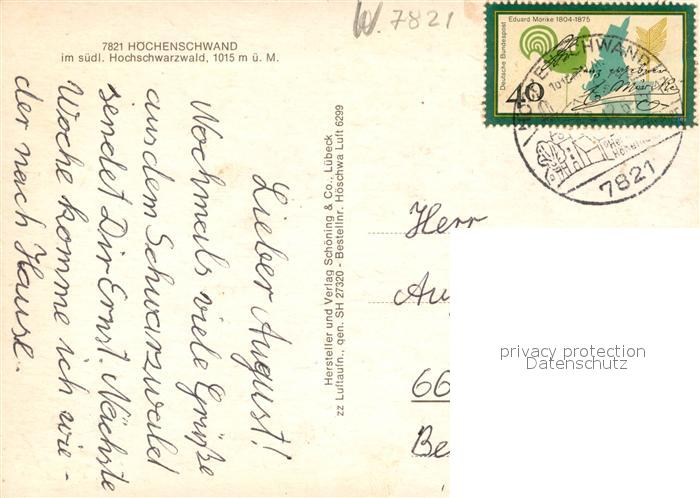 W. 7821
7821 HÖCHENSCHWAND
im südl. Hochschwarzwald, 1015 m ü. M.
Lieber August!
Nochmals viele Grüße
aus dem Schwarzwald
sendet Dir Ernst. Nächste
Woche komme ich wie-
der nach Hause.
Hersteller und Verlag Schöning & Co., Lübeck
zz Luftaufn., gen. SH 27320 - Bestellnr. Höschwa Luft 6299
Deutsche Bundespost
Eduard Mörike 1804-1875
40
HÖCHENSCHWAND
7821
Herr
Au
66
Be
privacy protection
Datenschutz